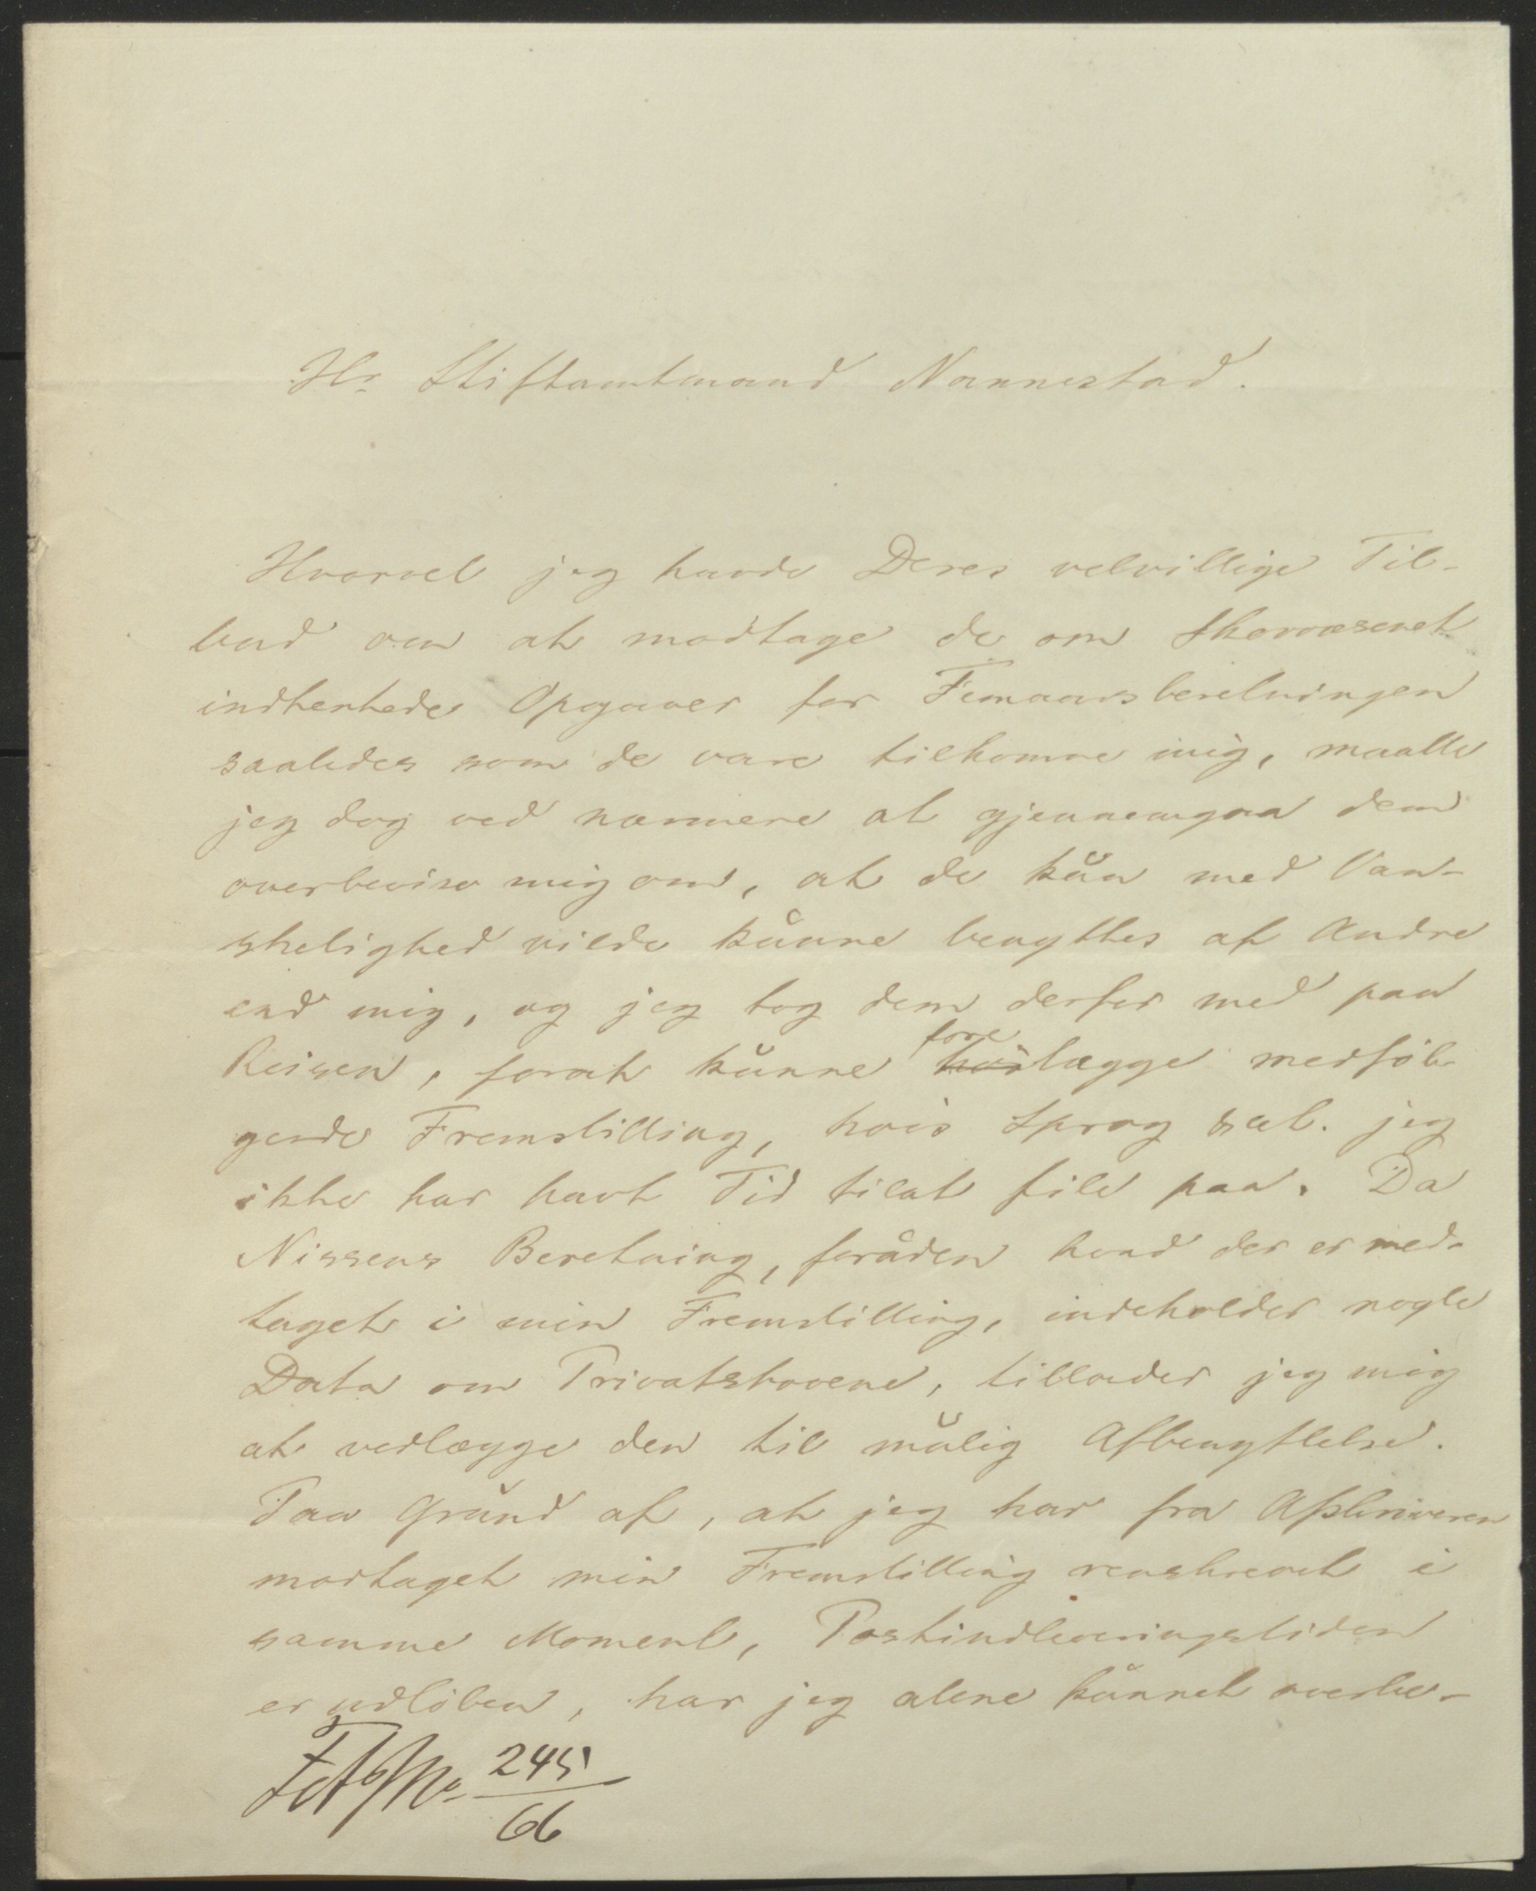 Hr. Stiftamtmand Nannestad.
Hvorvel jeg havde Deres velvillige Til-
bud om at modtage de om Skovvæsenet
indhentede Opgaver for Femaarsberetningen
saaledes som de vare tilkomne mig, maatte
jeg dog ved nærmere at gjennemgaa dem
overbevise mig om, at de kŭn med Van-
skelighed vilde kŭnne benyttes af Andre
end mig, og jeg tog dem derfor med paa
Reisen, forat kŭnne forelægge medföl-
gende Fremstilling, hvis Sprog jeg
ikke har havt Tid tilat file paa. Da
Nissens Beretning, forŭden hvad der er med-
taget i min Fremstilling, indeholder nogle
Data om Privatskovene, tillader jeg mig
at vedlægge den til mŭlig Afbenyttelse.
Paa Grŭnd af, at jeg har fra Afskriveren
modtaget min Fremstilling renskrevet i
samme Moment, Postindleveringstiden
er udlöben, har jeg alene kŭnnet overbe-
245
66